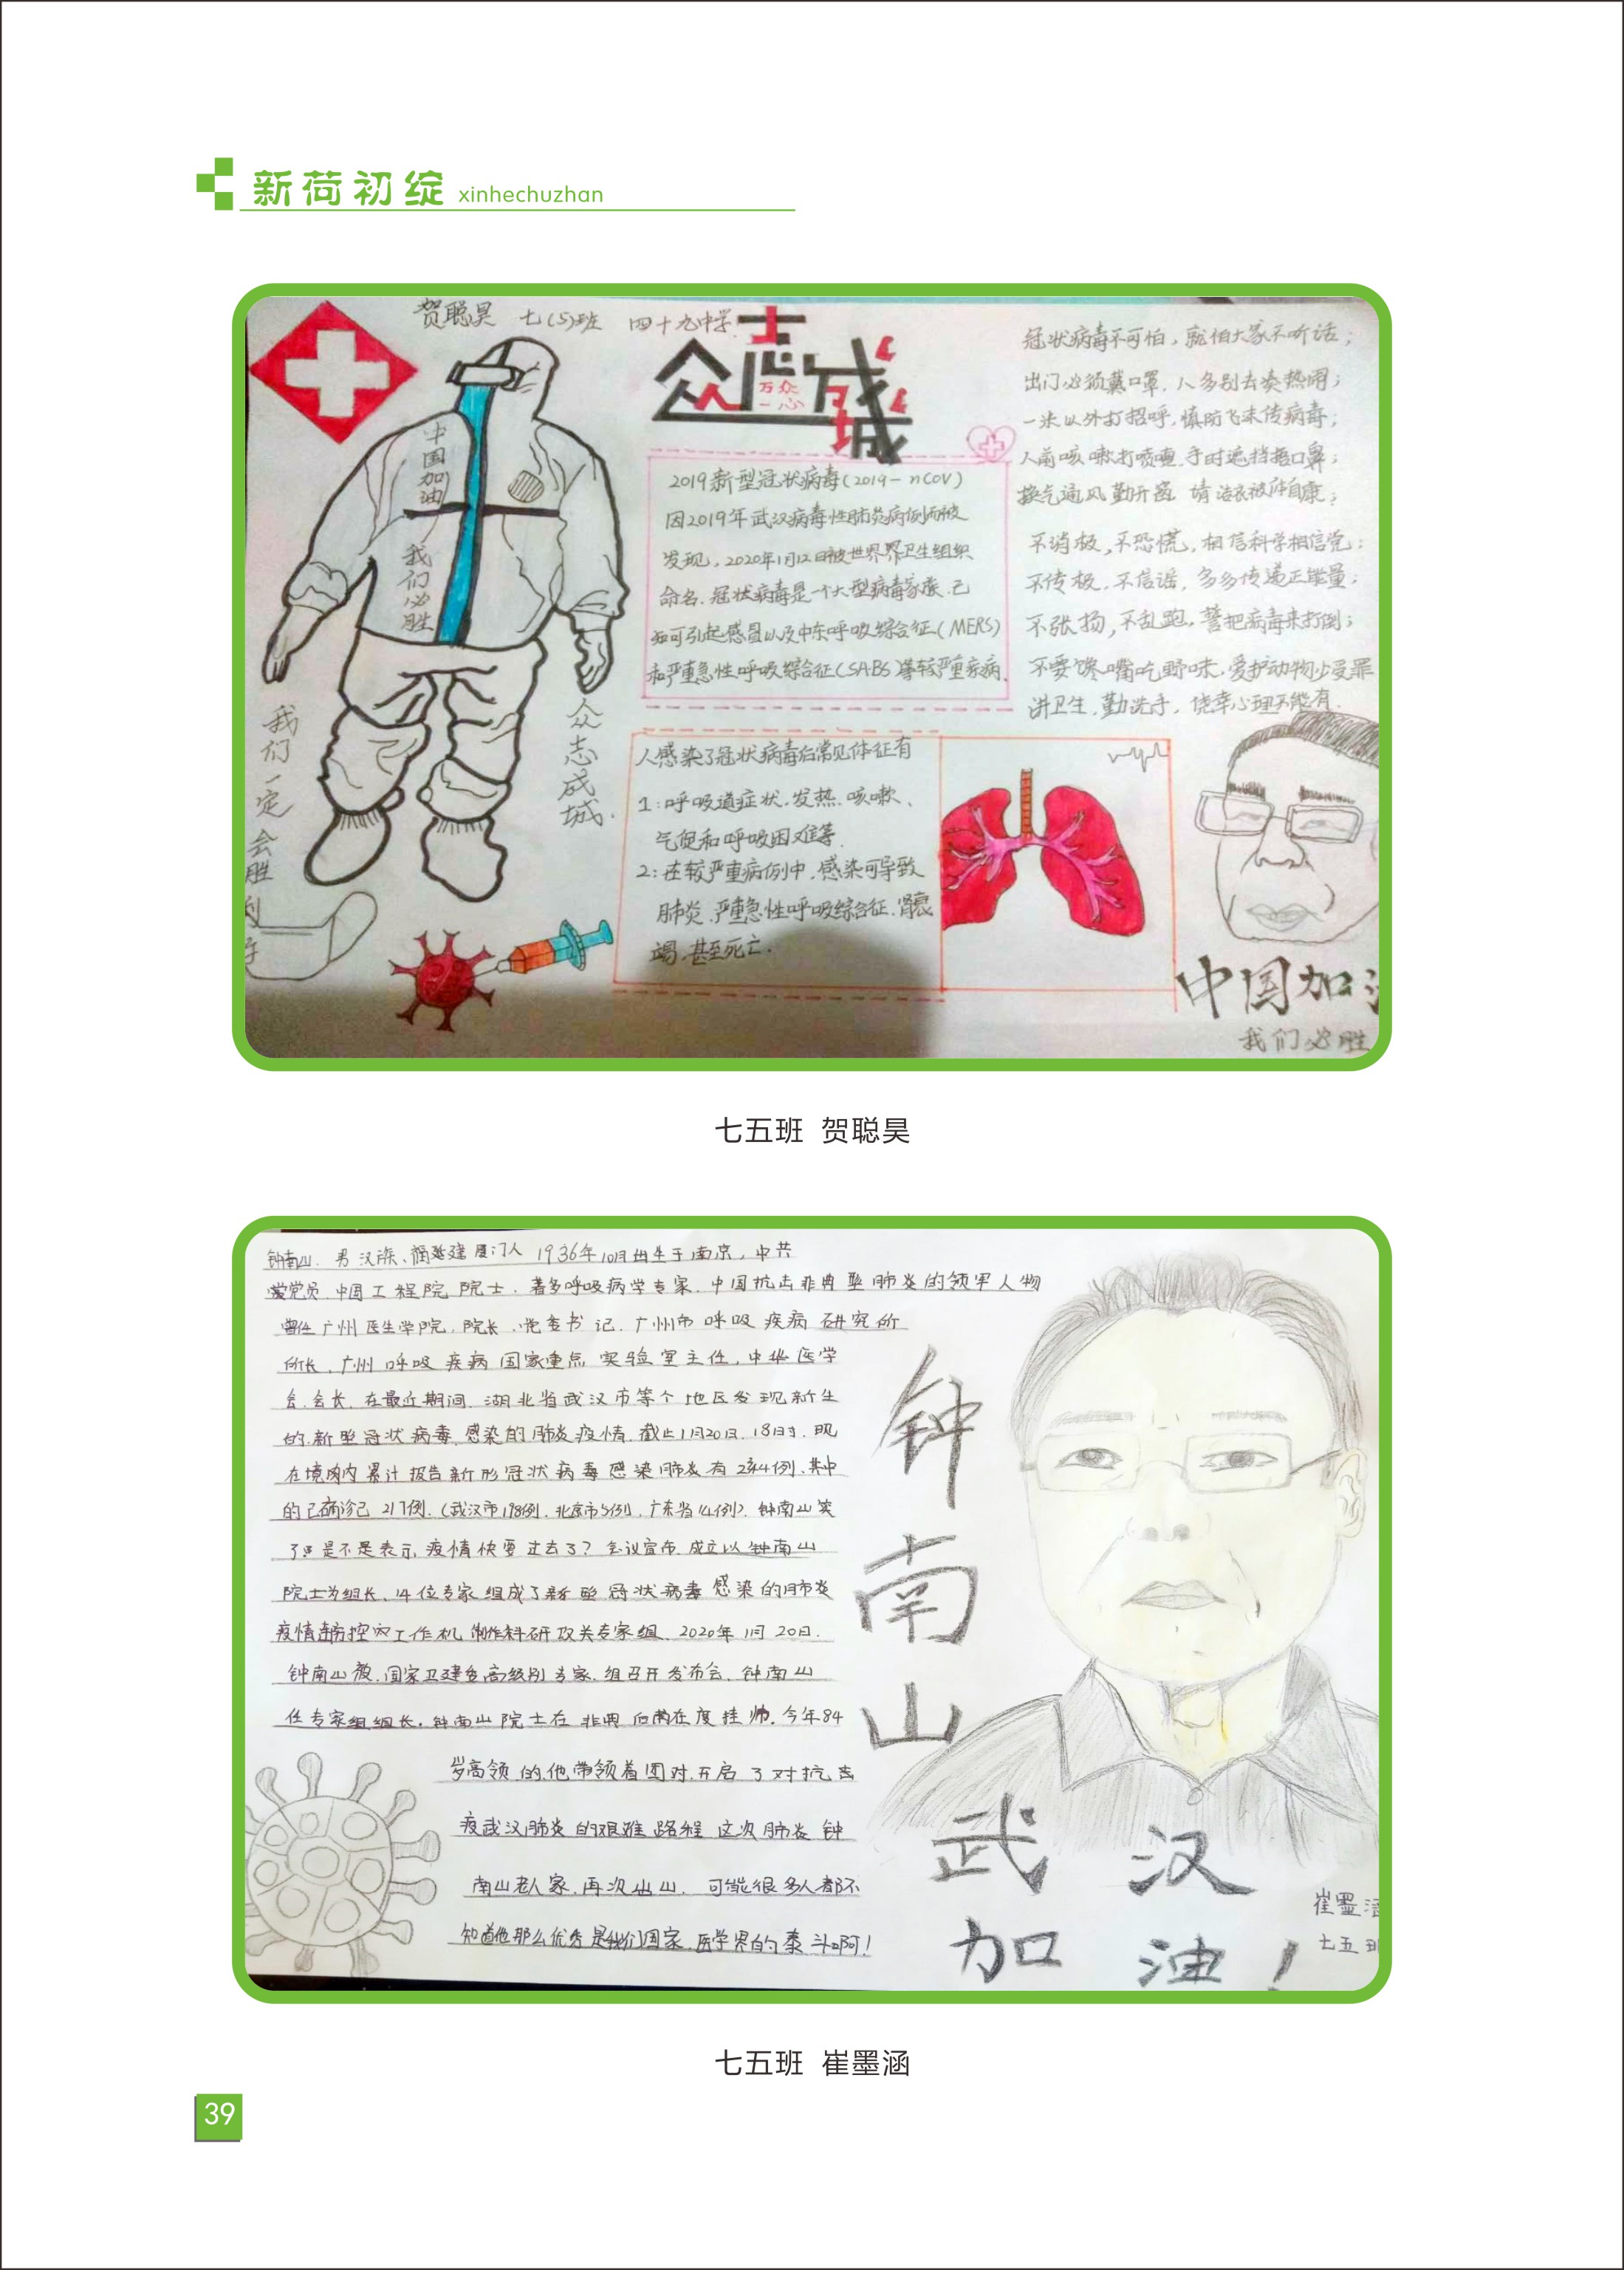 新荷初绽 xinhechuzhan
贺聪昊 七(5)班 四十九中学
众志成城
万众一心
中国加油
我们必胜
我们一定会胜
众志成城.
2019新型冠状病毒(2019-nCOV)
因2019年武汉病毒性肺炎病例而被
发现,2020年1月12日被世界界卫生组织
命名.冠状病毒是一个大型病毒家族.已
知可引起感冒以及中东呼吸综合征(MERS)
和严重急性呼吸综合征(SABS)等较严重疾病.
人感染了冠状病毒后常见体征有
1:呼吸道症状.发热.咳嗽、
气促和呼吸困难等.
2:在较严重病例中,感染可导致
肺炎.严重急性呼吸综合征.肾衰
竭.甚至死亡.
冠状病毒不可怕,就怕大家不听话;
出门必须戴口罩,人多别去凑热闹;
一米以外打招呼,慎防飞沫传病毒;
人前咳嗽打喷嚏.手时遮挡捂口鼻;
换气通风勤开窗
不消极,不恐慌,相信科学相信党;
不传极,不信谣,多多传递正能量;
不张扬,不乱跑,誓把病毒来打倒;
不要馋嘴吃野味,爱护动物少受罪
讲卫生.勤洗手,侥幸心理不能有.
中国加
我们必胜
七五班 贺聪昊
钟南山.男 汉族、福建 厦门人 1936年10月出生于南京,中共
党员 中国工程院 院士.著多呼吸病学专家.中国抗击非典型肺炎的领军人物
曾任广州医生学院,院长、党委书记.广州市呼吸疾病研究所
所长、广州呼吸疾病国家重点实验室主任,中华医学
会.会长.在最近期间.湖北省武汉市等个地区发现新生
的.新型冠状病毒.感染的肺炎疫情.截止1月20日.18时.现
在境内累计报告新形冠状病毒感染肺炎有 例、其中
的已确诊已217例.(武汉市198例.北京市5例.广东省14例).钟南山笑
了 是不是表示.疫情快要过去了?会议宣布.成立以钟南山
院士为组长、14位专家组成了新型冠状病毒感染的肺炎
疫情 防控 工作机制 科研攻关专家组.2020年1月20日.
钟南山被.国家卫建委高级别专家.组召开发布会.钟南山
任专家组组长.钟南山院士在非典后 在度挂帅.今年84
岁高领的.他带领着团对.开启了对抗击
疫武汉肺炎的艰难路程 这次肺炎钟
南山老人家.再次出山.可能很多人都不
知道他那么优秀是我们国家.医学界的泰斗啊!
钟南山
武汉
加油!
崔墨涵
七五班
七五班 崔墨涵
39